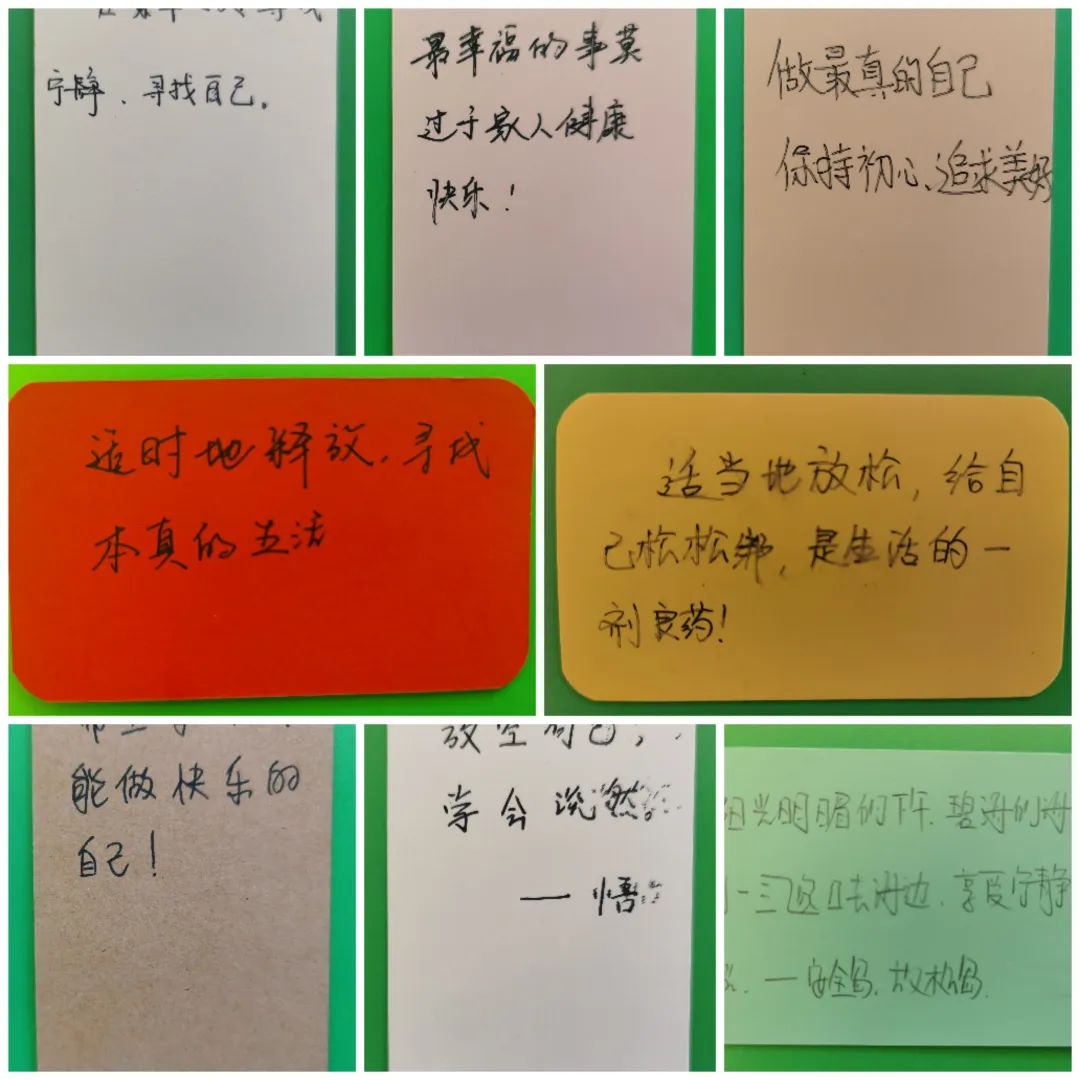 宁静、寻找自己。
最幸福的事莫
过于家人健康
快乐！
做最真的自己
保持初心、追求美好
适时地释放，寻找
本真的生活
适当地放松，给自
己松松绑，是生活的一
剂良药！
能做快乐的
自己！
放空自己，
学会淡然。
—悟
阳光明媚的下午.碧海
去海边、享受宁静
一安全岛.放松岛.